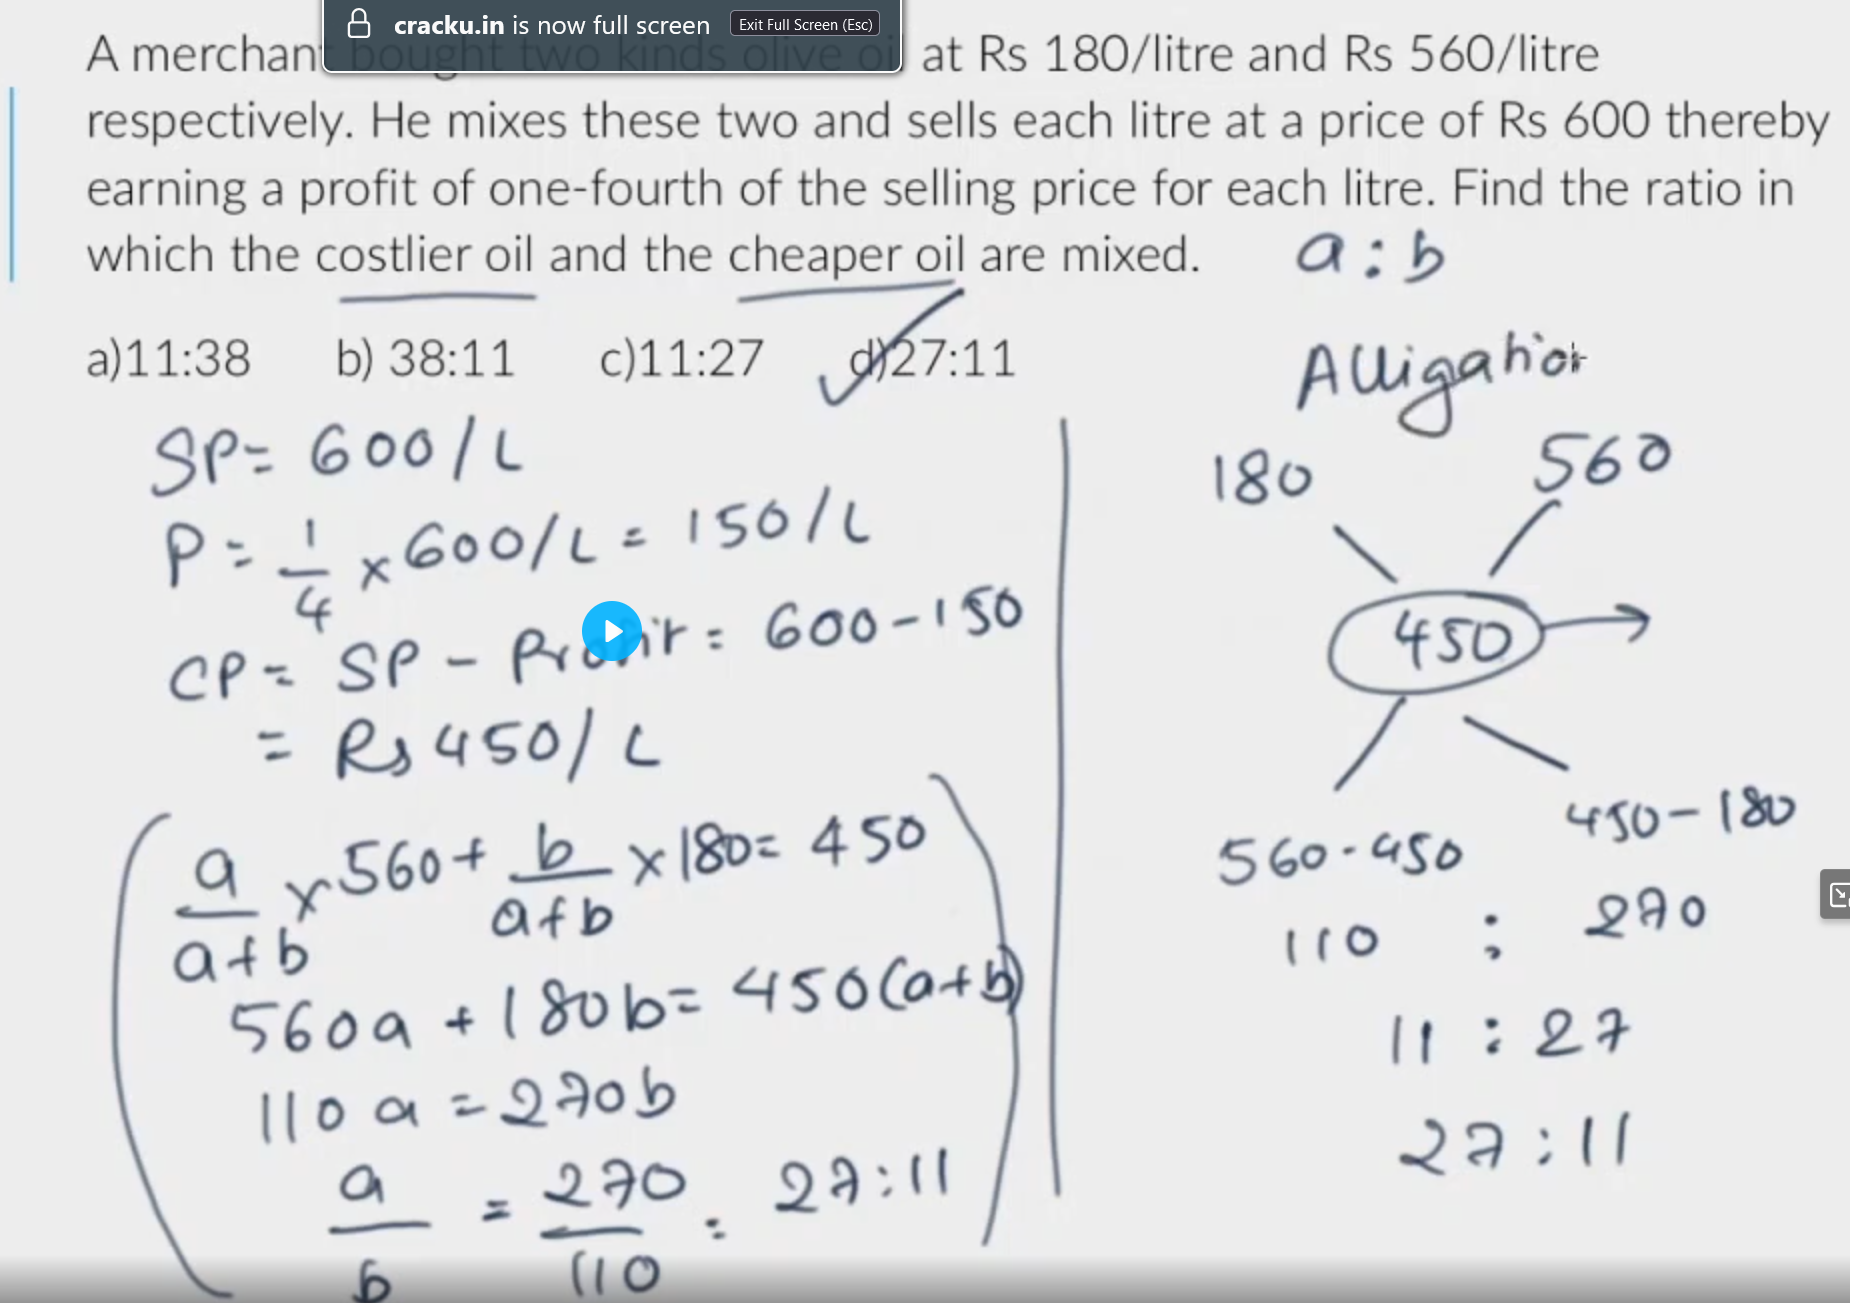 cracku.in is now full screen Exit Full Screen (Esc)
A merchant bought two kinds olive oil at Rs 180/litre and Rs 560/litre
respectively. He mixes these two and sells each litre at a price of Rs 600 thereby
earning a profit of one-fourth of the selling price for each litre. Find the ratio in
which the costlier oil and the cheaper oil are mixed.
a : b
a)11:38 b) 38:11 c)11:27 d)27:11
SP = 600/L
P = 1/4 × 600/L = 150/L
CP = SP - Profit = 600 - 150
= Rs 450/L
a/a+b × 560 + b/a+b × 180 = 450
560a + 180b = 450(a+b)
110 a = 270b
a/b = 270/110 = 27:11
Alligation
180 560
450
560-450 450-180
110 : 270
11 : 27
27 : 11